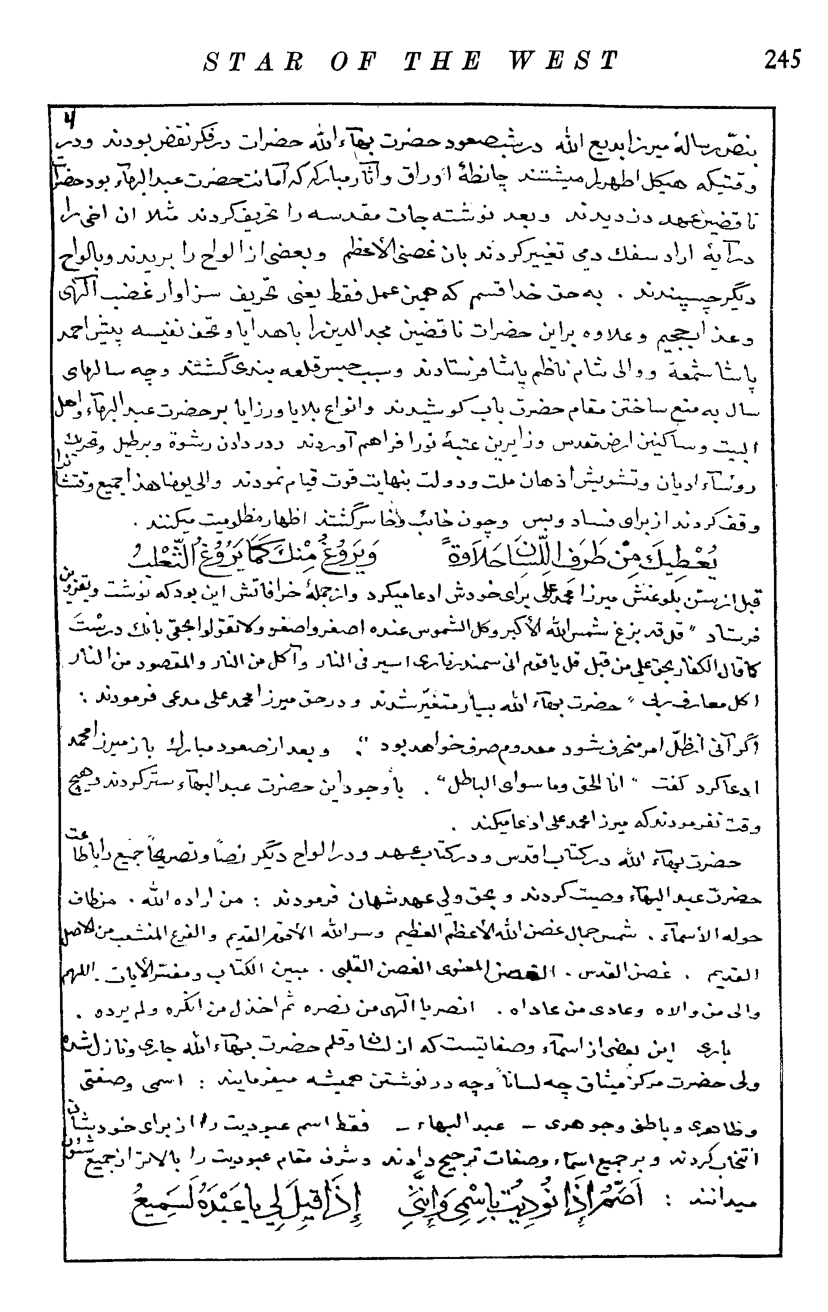 STAR OF THE WEST 245
۴
بنصّ رسالهٔ میرزا بدیع الله در شب صعود حضرت بهآءالله حضرات در فکر نقض بودند و در
وقتیکه هیکل اطهر را میشستند چانطهٔ اوراق و آثار مبارکه که امانت حضرت عبدالبهآء بود حضرا
ناقضین عهد دزدیدند و بعد نوشته جات مقدسه را تحریف کردند مثلا ان اخی را
در آیهٔ اراد سفك دمی تغییر کردند بان غصنی الأعظم و بعضی از الواح را بریدند و بالواح
دیگر چسپیندند . به حق خدا قسم که همین عمل فقط یعنی تحریف سزاوار غضب الهی
و عذاب جحیم و علاوه براین حضرات ناقضین مجدالدین را با هدایا و تحف نفیسه پیش احمد
پاشا شمعة و والی شام ناظم پاشا فرستادند و سبب حبس قلعه بندی گشتند و چه سالهای
سال به منع ساختن مقام حضرت باب کوشیدند و انواع بلایا و رزایا بر حضرت عبدالبهآء و اهل
البیت و ساکنین ارض مقدس و زایرین عتبهٔ نورا فراهم آوردند ودر دادن رشوة و برطیل و تحریك
روسآء ادیان و تشویش اذهان ملت و دولت بنهایت قوت قیام نمودند والی یومنا هذا جمیع وقتشانرا
وقف کردند از برای فساد و بس وچون خائب و خاسر گشتند اظهار مظلومیت میکنند .
یُعْطِیكَ مِنْ طَرَفِ اللِّسَانِ حَلاَوةً وَیَرُوغُ مِنْكَ كَمَا یَرُوغُ الثَّعْلَبُ
قبل از سن بلوغش میرزا محمد علی برای خودش ادعا میکرد و از جملهٔ خرافاتش این بود که نوشت و بقزوین
فرستاد " قل قد بزغ شمس الله الأکبر وکل الشموس عنده اصغر و اصغر ولا تقولوا بحقی بانك در شت
کما قال الکفار بحق علی من قبل قل یا قوم انی سمندر ناری اسیر فی النار و آکل من النار والمقصود من النار
اکل معارف ربی " حضرت بهآءالله بسیار متغیّر شدند و در حق میرزا محمد علی مدعی فرمودند :
اگر آنی از ظلّ امر منحرف شود معدوم صرف خواهد بود ". و بعد از صعود مبارك باز میرزا محمد
ادعا کرد گفت " انا الحق وما سوای الباطل " . با وجود این حضرت عبدالبهآء ستر کردند و هیچ
وقت نفرمودند که میرزا محمد علی ادعا میکند .
حضرت بهآءالله در کتاب اقدس و در کتاب عهد و در الواح دیگر نصاً و تصریحاً جمیع را باطاعت
حضرت عبدالبهآء وصیت کردند و بحق ولی عهد شهان فرمودند : من اراده الله . من طاف
حوله الأسمآء . شمس جمال غصن الله الأعظم العظیم وسر الله الأقوم القدیم والفرع المنشعب من الاصل
القدیم . غصن القدس . الغصن المعنوی الغصن القلبی . مبین الکتاب ومفسر الآیات . اللهم
وال من والاه وعادی من عاداه . انصر یا الهی من نصره ثم اخذل من انکره ولم یرده .
باری این بعضی از اسمآء وصفاتیست که از لسان و قلم حضرت بهآءالله جاری و نازل شده
ولی حضرت مرکز میثاق چه لساناً وچه در نوشتن همیشه میفرمایند : اسمی وصفتی
وظاهری و باطنی وجوهری - عبدالبهاء - فقط اسم عبودیت را از برای خودشان
انتخاب کردند و بر جمیع اسمآء وصفات ترجیح دادند وشرف مقام عبودیت را بالاتر از جمیع شئون
میدانند : اَصَمُّ اِذَا نُودِیْتُ بِاسْمِی وَاِنَّنِی اِذَا قِیلَ لِی یا عَبْدَهُ لَسَمِیعُ